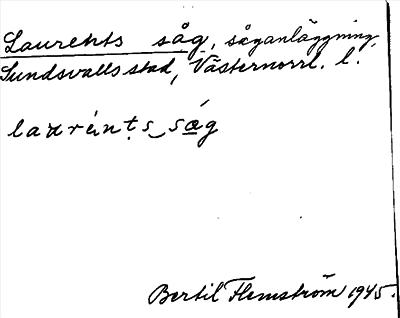 Laurents såg, såganläggning,
Sundsvalls stad, Västernorrl. l.
laʊrén̥t̥s såg
Bertil Flemström 1945.